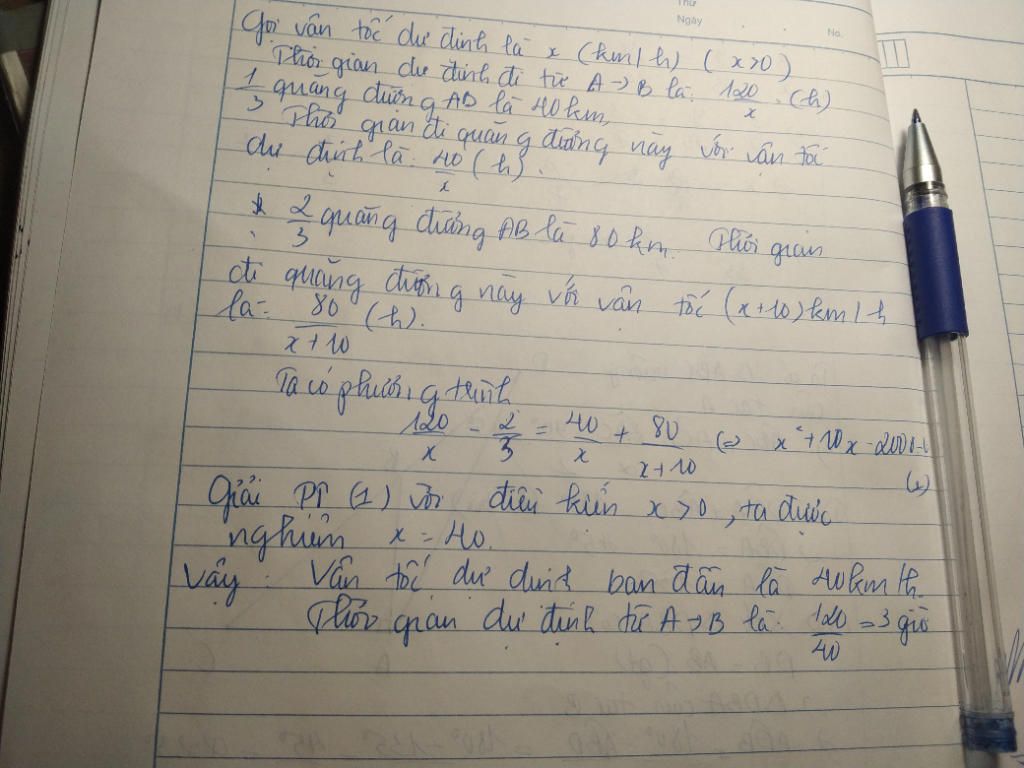 Thứ
Ngày
No.
Gọi vận tốc dự định là x (km/h) (x>0)
Thời gian dự định đi từ A→B là: 120/x (h)
1/3 quãng đường AB là 40km,
Thời gian đi quãng đường này với vận tốc
dự định là: 40/x (h).
2/3 quãng đường AB là 80km. Thời gian
đi quãng đường này với vận tốc (x+10)km/h
là: 80/(x+10) (h).
Ta có phương trình
120/x - 2/3 = 40/x + 80/(x+10) (=) x² + 10x - 2000
(1)
Giải PT (1) với điều kiến x>0, ta được
nghiệm x = 40.
Vậy: Vận tốc dự định ban đầu là 40km/h.
Thời gian dự định từ A→B là: 120/40 = 3 giờ